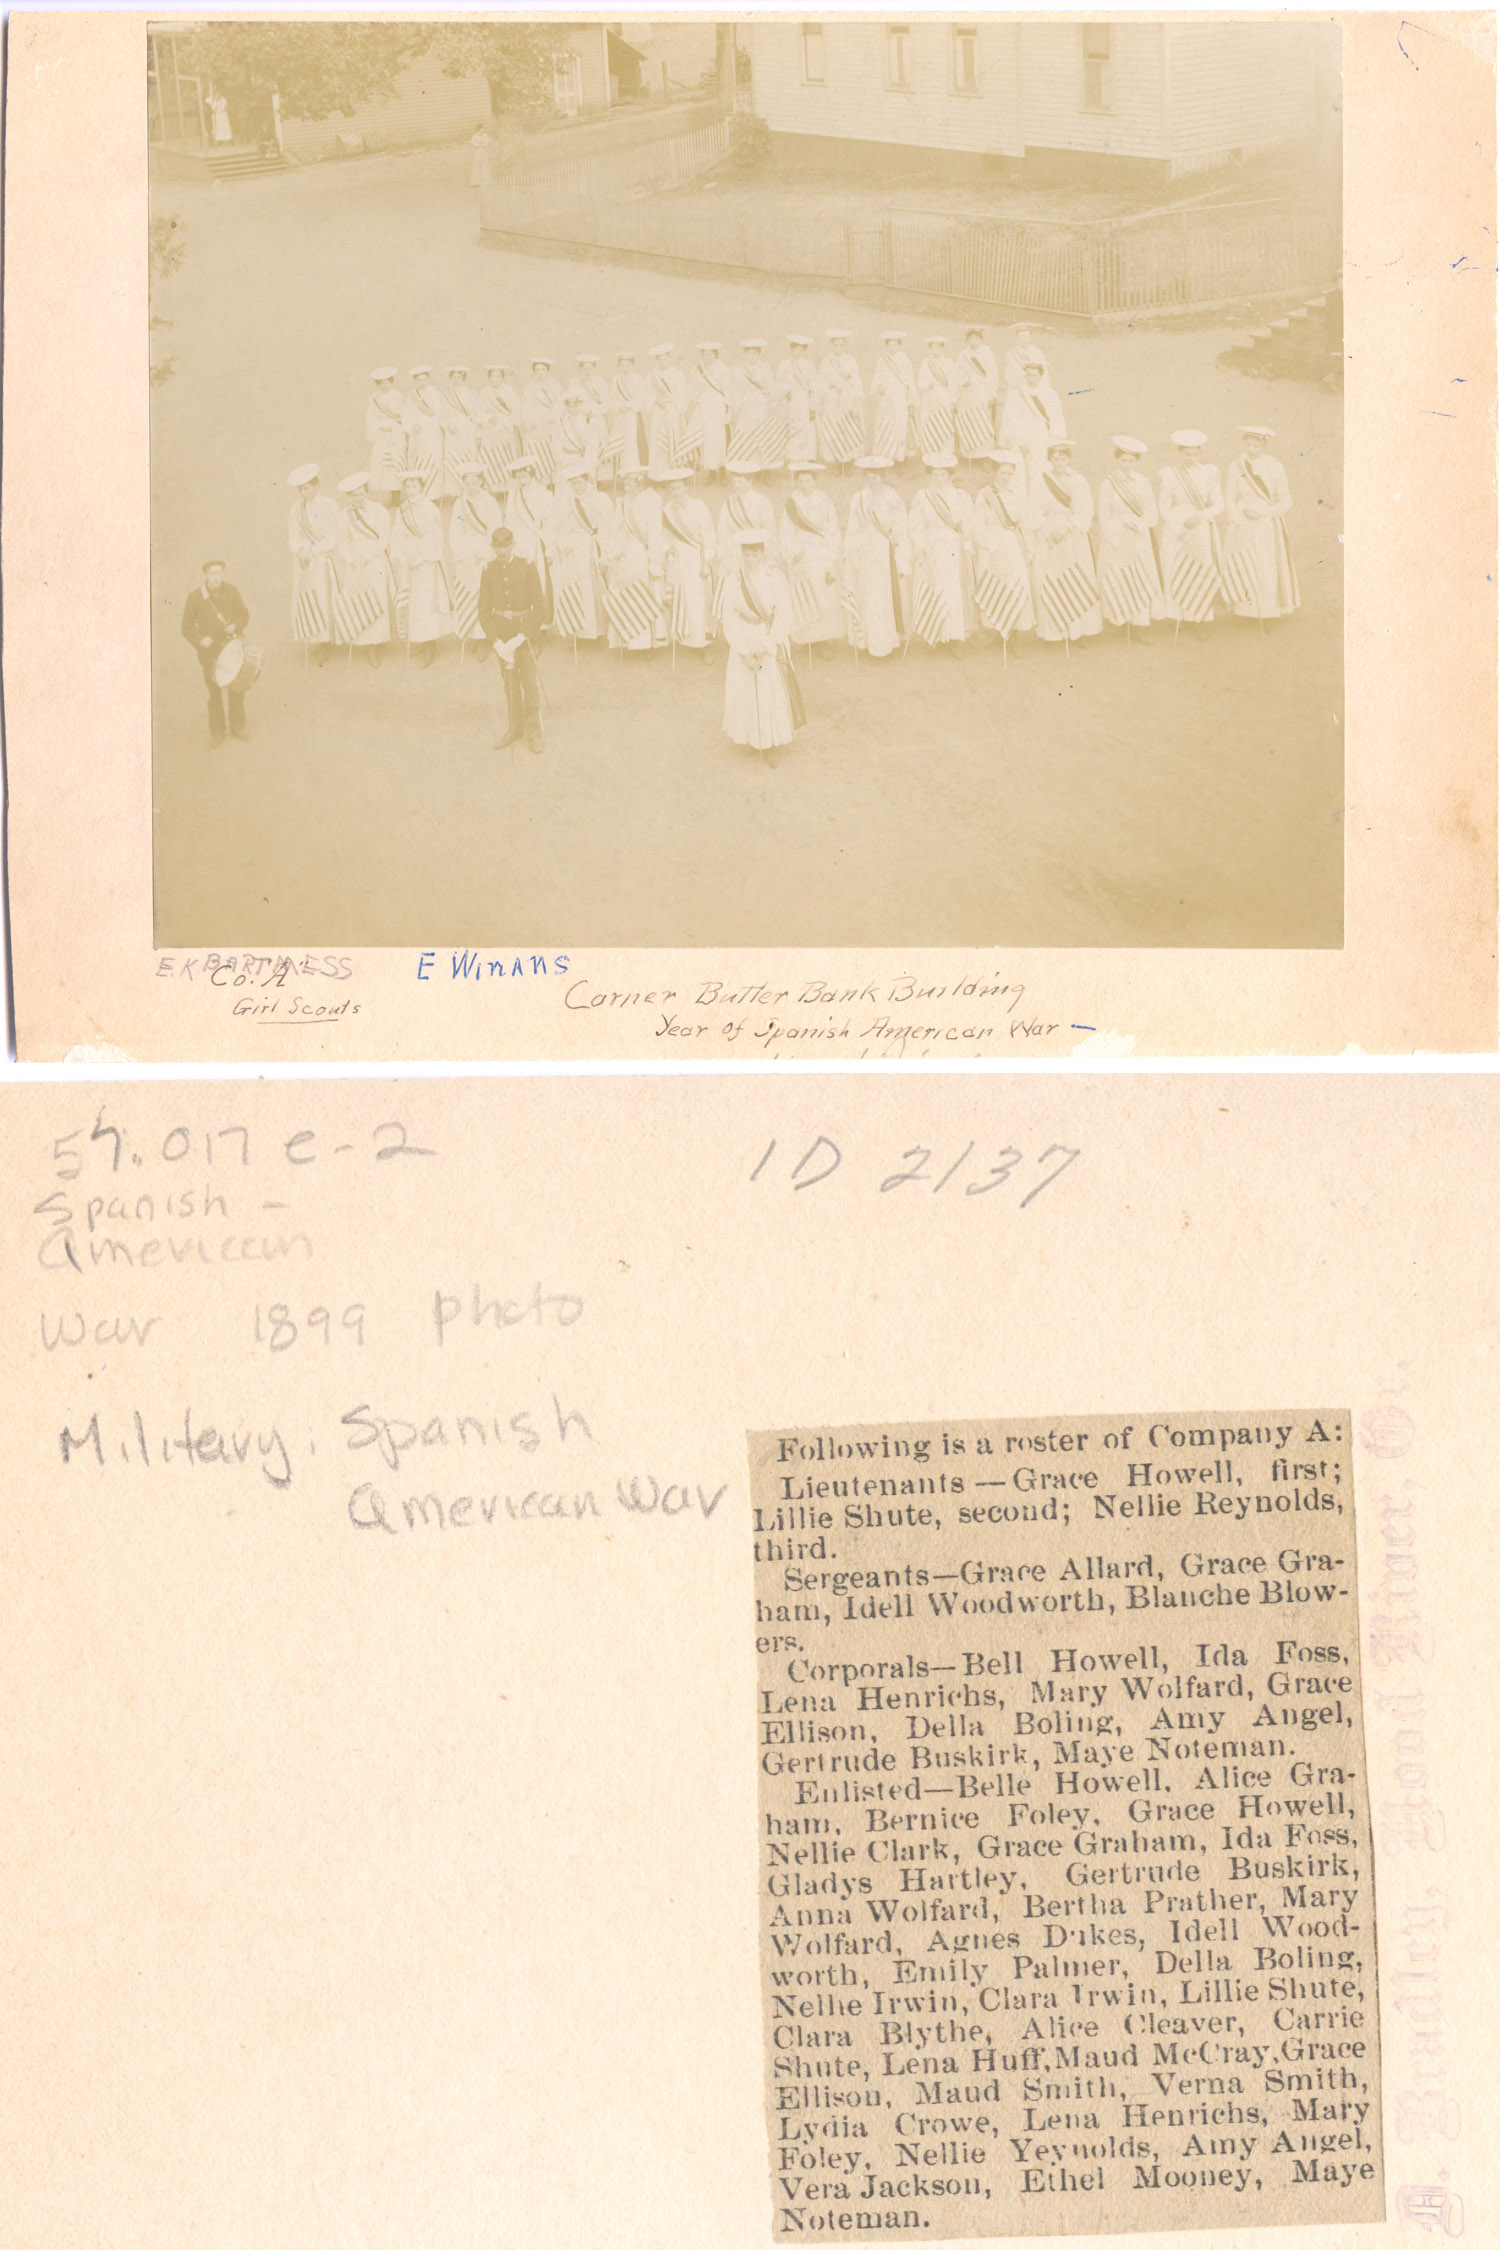 E.K BARTMESS
Co. A
Girl Scouts
E WINANS
Corner Butler Bank Building
Year of Spanish American War —
57.017 e-2
ID 2137
Spanish -
American
War 1899 photo
Military: Spanish
American War
Following is a roster of Company A:
Lieutenants — Grace Howell, first;
Lillie Shute, second; Nellie Reynolds,
third.
Sergeants—Grace Allard, Grace Gra-
ham, Idell Woodworth, Blanche Blow-
ers.
Corporals—Bell Howell, Ida Foss,
Lena Henrichs, Mary Wolfard, Grace
Ellison, Della Boling, Amy Angel,
Gertrude Buskirk, Maye Noteman.
Enlisted—Belle Howell, Alice Gra-
ham, Bernice Foley, Grace Howell,
Nellie Clark, Grace Graham, Ida Foss,
Gladys Hartley, Gertrude Buskirk,
Anna Wolfard, Bertha Prather, Mary
Wolfard, Agnes Dukes, Idell Wood-
worth, Emily Palmer, Della Boling,
Nellie Irwin, Clara Irwin, Lillie Shute,
Clara Blythe, Alice Cleaver, Carrie
Shute, Lena Huff, Maud McCray, Grace
Ellison, Maud Smith, Verna Smith,
Lydia Crowe, Lena Henrichs, Mary
Foley, Nellie Yeynolds, Amy Angel,
Vera Jackson, Ethel Mooney, Maye
Noteman.
D. Bradley, Hood River, Or.